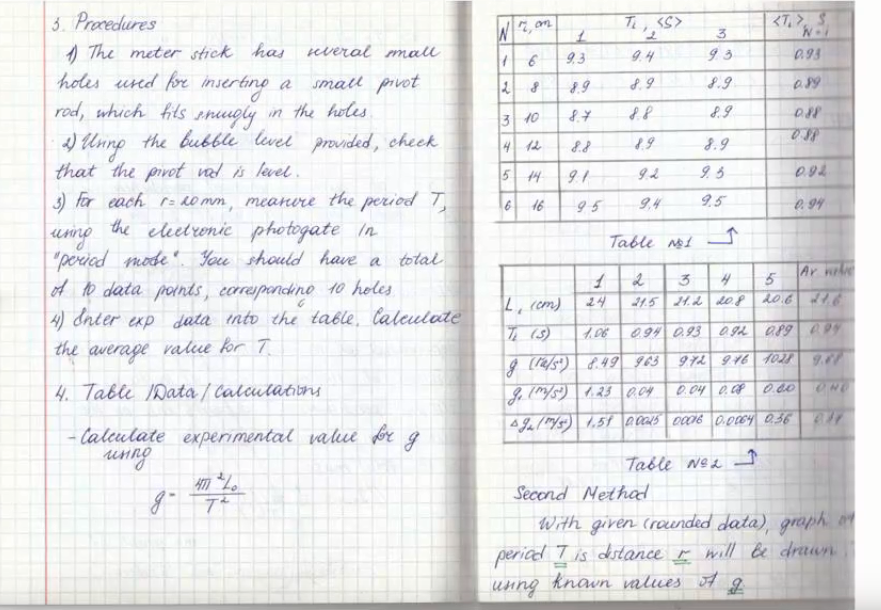 3. Procedures
1) The meter stick has several small
holes used for inserting a small pivot
rod, which fits snugly in the holes.
2) Using the bubble level provided, check
that the pivot rod is level.
3) For each r = 20mm, measure the period T,
using the electronic photogate in
"period mode". You should have a total
of 10 data points, corresponding 10 holes
4) Enter exp data into the table. Calculate
the average value for T.
4. Table /Data/ Calculations
- Calculate experimental value for g
using
g = 4π²L₀ / T²
N r, cm T₁, <S> <T₁>, S
1 2 3 N=1
1 6 9.3 9.4 9.3 0.93
2 8 8.9 8.9 8.9 0.89
3 10 8.7 8.8 8.9 0.88
4 12 8.8 8.9 8.9 0.88
5 14 9.1 9.2 9.3 0.92
6 16 9.5 9.4 9.5 0.94
Table №1
1 2 3 4 5 Ar
L, (cm) 24 21.5 21.2 20.8 20.6 21.6
T₁ (s) 1.06 0.94 0.93 0.92 0.89
g 8.49 963 972 9.76 1028
g, (m/s²) 1.23 0.04 0.04 0.08 0.60
Δg₂ (m/s²) 1.51 0.0025 0.0064 0.36
Table №2
Second Method
With given (rounded data), graph of
period T is distance r will be drawn
using known values of g